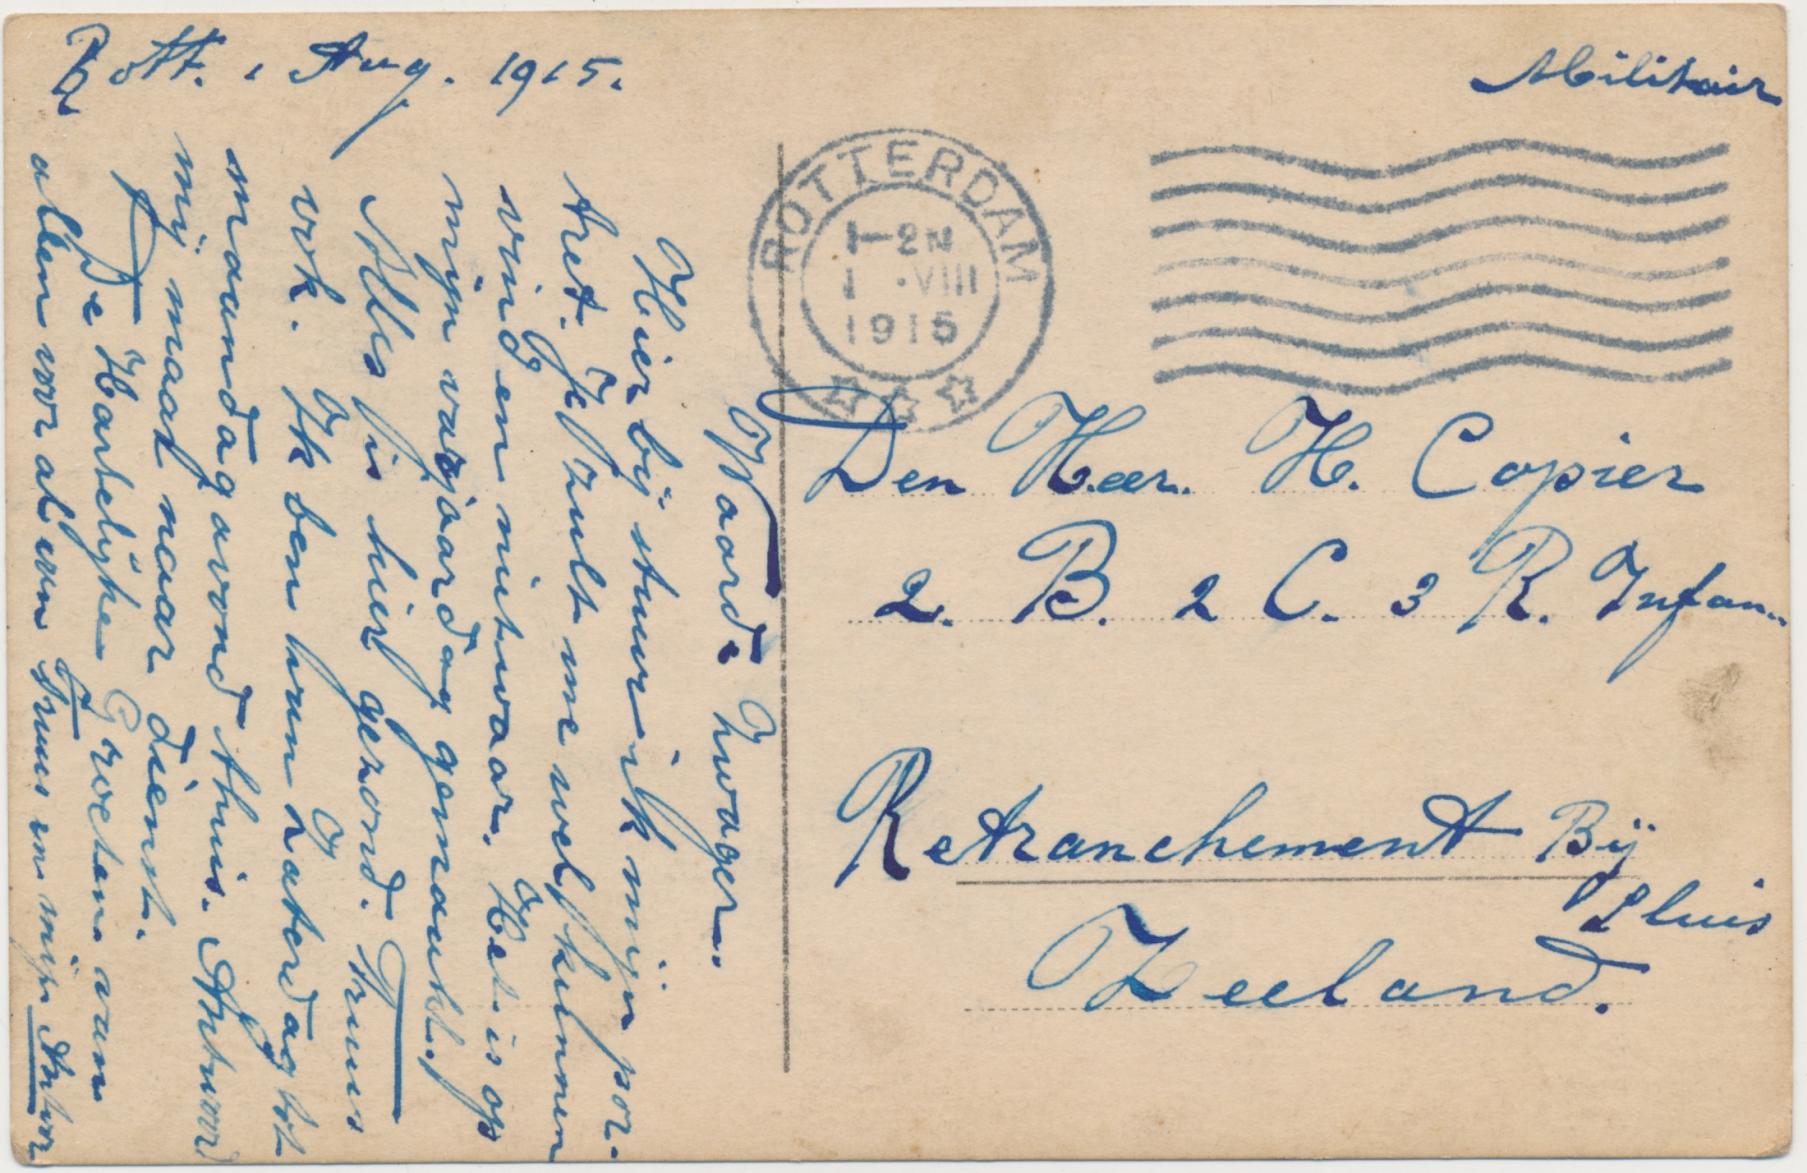 Rott. 1 Aug. 1915.
Waarde Zwager.
Hierbij stuur ik mijn por-
tret. Je zult me wel kunnen
vinden nietwaar. Het is op
mijn verjaardag gemaakt.
Alles is hier gezond. Truus
ook. Ik ben van Zaterdag tot
maandagavond thuis. Antwoord
mij maar naar dienst.
De Hartelijke Groeten van
allen vooral van Truus en mijn
Militair
ROTTERDAM
1-2N
1 .VIII
1915
Den Heer. H. Copier
2. B. 2 C. 3 R. Infan..
Retranchement Bij
Sluis
Zeeland.